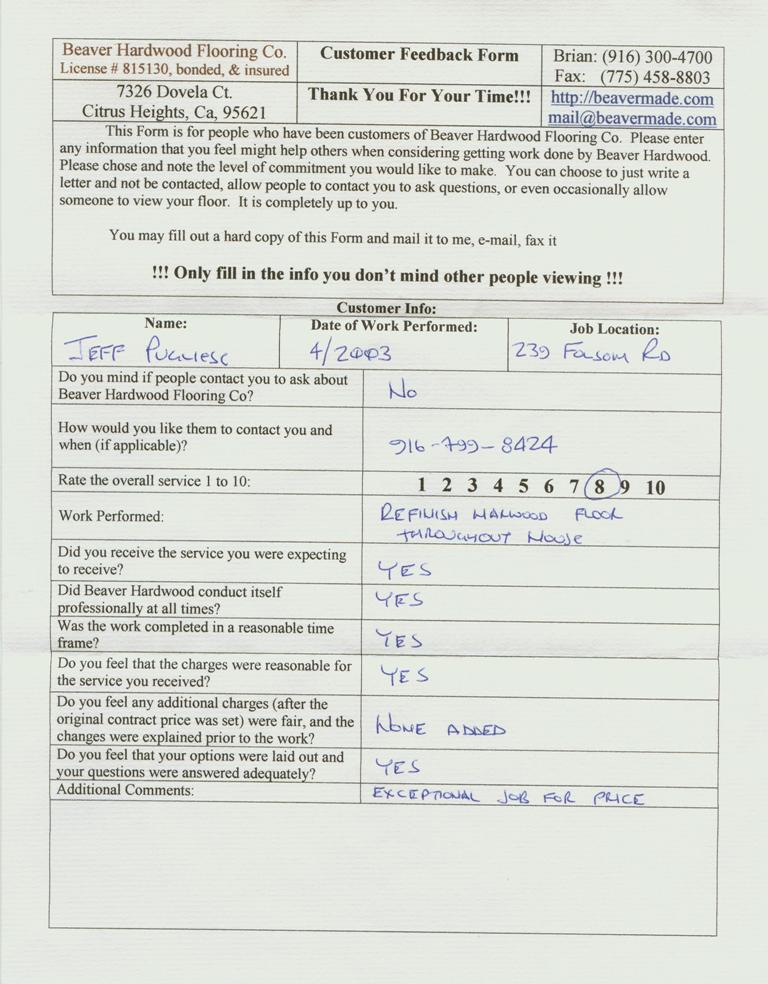 Beaver Hardwood Flooring Co.
License # 815130, bonded, & insured
Customer Feedback Form
Brian: (916) 300-4700
Fax: (775) 458-8803
7326 Dovela Ct.
Citrus Heights, Ca, 95621
Thank You For Your Time!!!
http://beavermade.com
mail@beavermade.com
This Form is for people who have been customers of Beaver Hardwood Flooring Co. Please enter
any information that you feel might help others when considering getting work done by Beaver Hardwood.
Please chose and note the level of commitment you would like to make. You can choose to just write a
letter and not be contacted, allow people to contact you to ask questions, or even occasionally allow
someone to view your floor. It is completely up to you.
You may fill out a hard copy of this Form and mail it to me, e-mail, fax it
!!! Only fill in the info you don't mind other people viewing !!!
Customer Info:
Name:
Date of Work Performed:
Job Location:
JEFF PUGLIESE
4/2003
239 FOLSOM RD
Do you mind if people contact you to ask about
Beaver Hardwood Flooring Co?
No
How would you like them to contact you and
when (if applicable)?
916-799-8424
Rate the overall service 1 to 10:
1 2 3 4 5 6 7 8 9 10
Work Performed:
REFINISH HARWOOD FLOOR
THROUGHOUT HOUSE
Did you receive the service you were expecting
to receive?
YES
Did Beaver Hardwood conduct itself
professionally at all times?
YES
Was the work completed in a reasonable time
frame?
YES
Do you feel that the charges were reasonable for
the service you received?
YES
Do you feel any additional charges (after the
original contract price was set) were fair, and the
changes were explained prior to the work?
NONE ADDED
Do you feel that your options were laid out and
your questions were answered adequately?
YES
Additional Comments:
EXCEPTIONAL JOB FOR PRICE